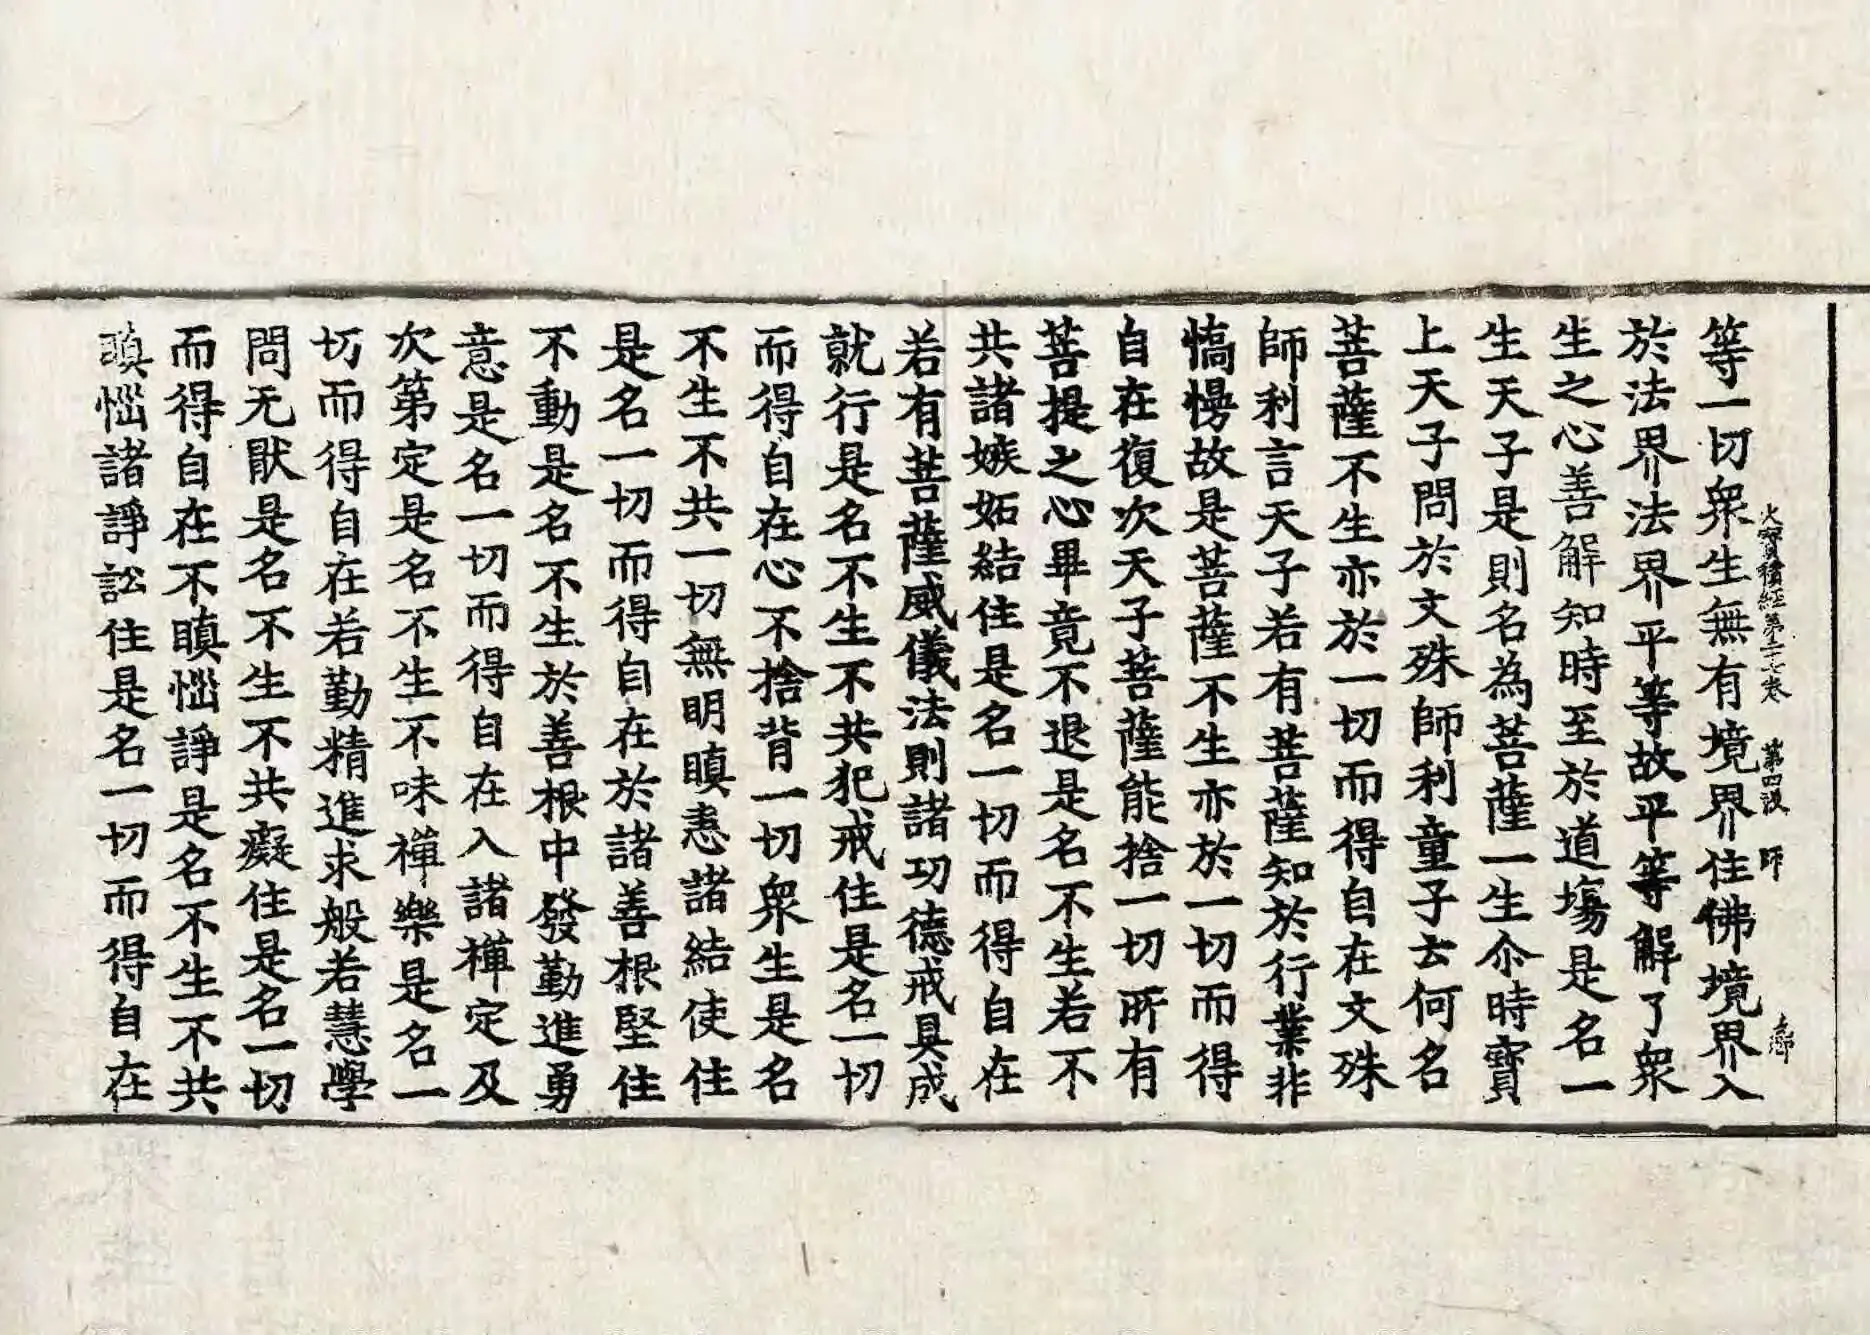 大寶積經第二十七卷 第四張 師
等一切衆生無有境界住佛境界入
於法界法界平等故平等解了衆
生之心善解知時至於道塲是名一
生天子是則名為菩薩一生尒時寳
上天子問於文殊師利童子云何名
菩薩不生亦於一切而得自在文殊
師利言天子若有菩薩知於行業非
憍慢故是菩薩不生亦於一切而得
自在復次天子菩薩能捨一切所有
菩提之心畢竟不退是名不生若不
共諸嫉妬結住是名一切而得自在
若有菩薩威儀法則諸功德戒具成
就行是名不生不共犯戒住是名一切
而得自在心不捨背一切衆生是名
不生不共一切無明瞋恚諸結使住
是名一切而得自在於諸善根堅住
不動是名不生於善根中發勤進勇
意是名一切而得自在入諸禪定及
次第定是名不生不味禪樂是名一
切而得自在若勤精進求般若慧學
問无猒是名不生不共癡住是名一切
而得自在不瞋惱諍是名不生不共
瞋惱諸諍訟住是名一切而得自在